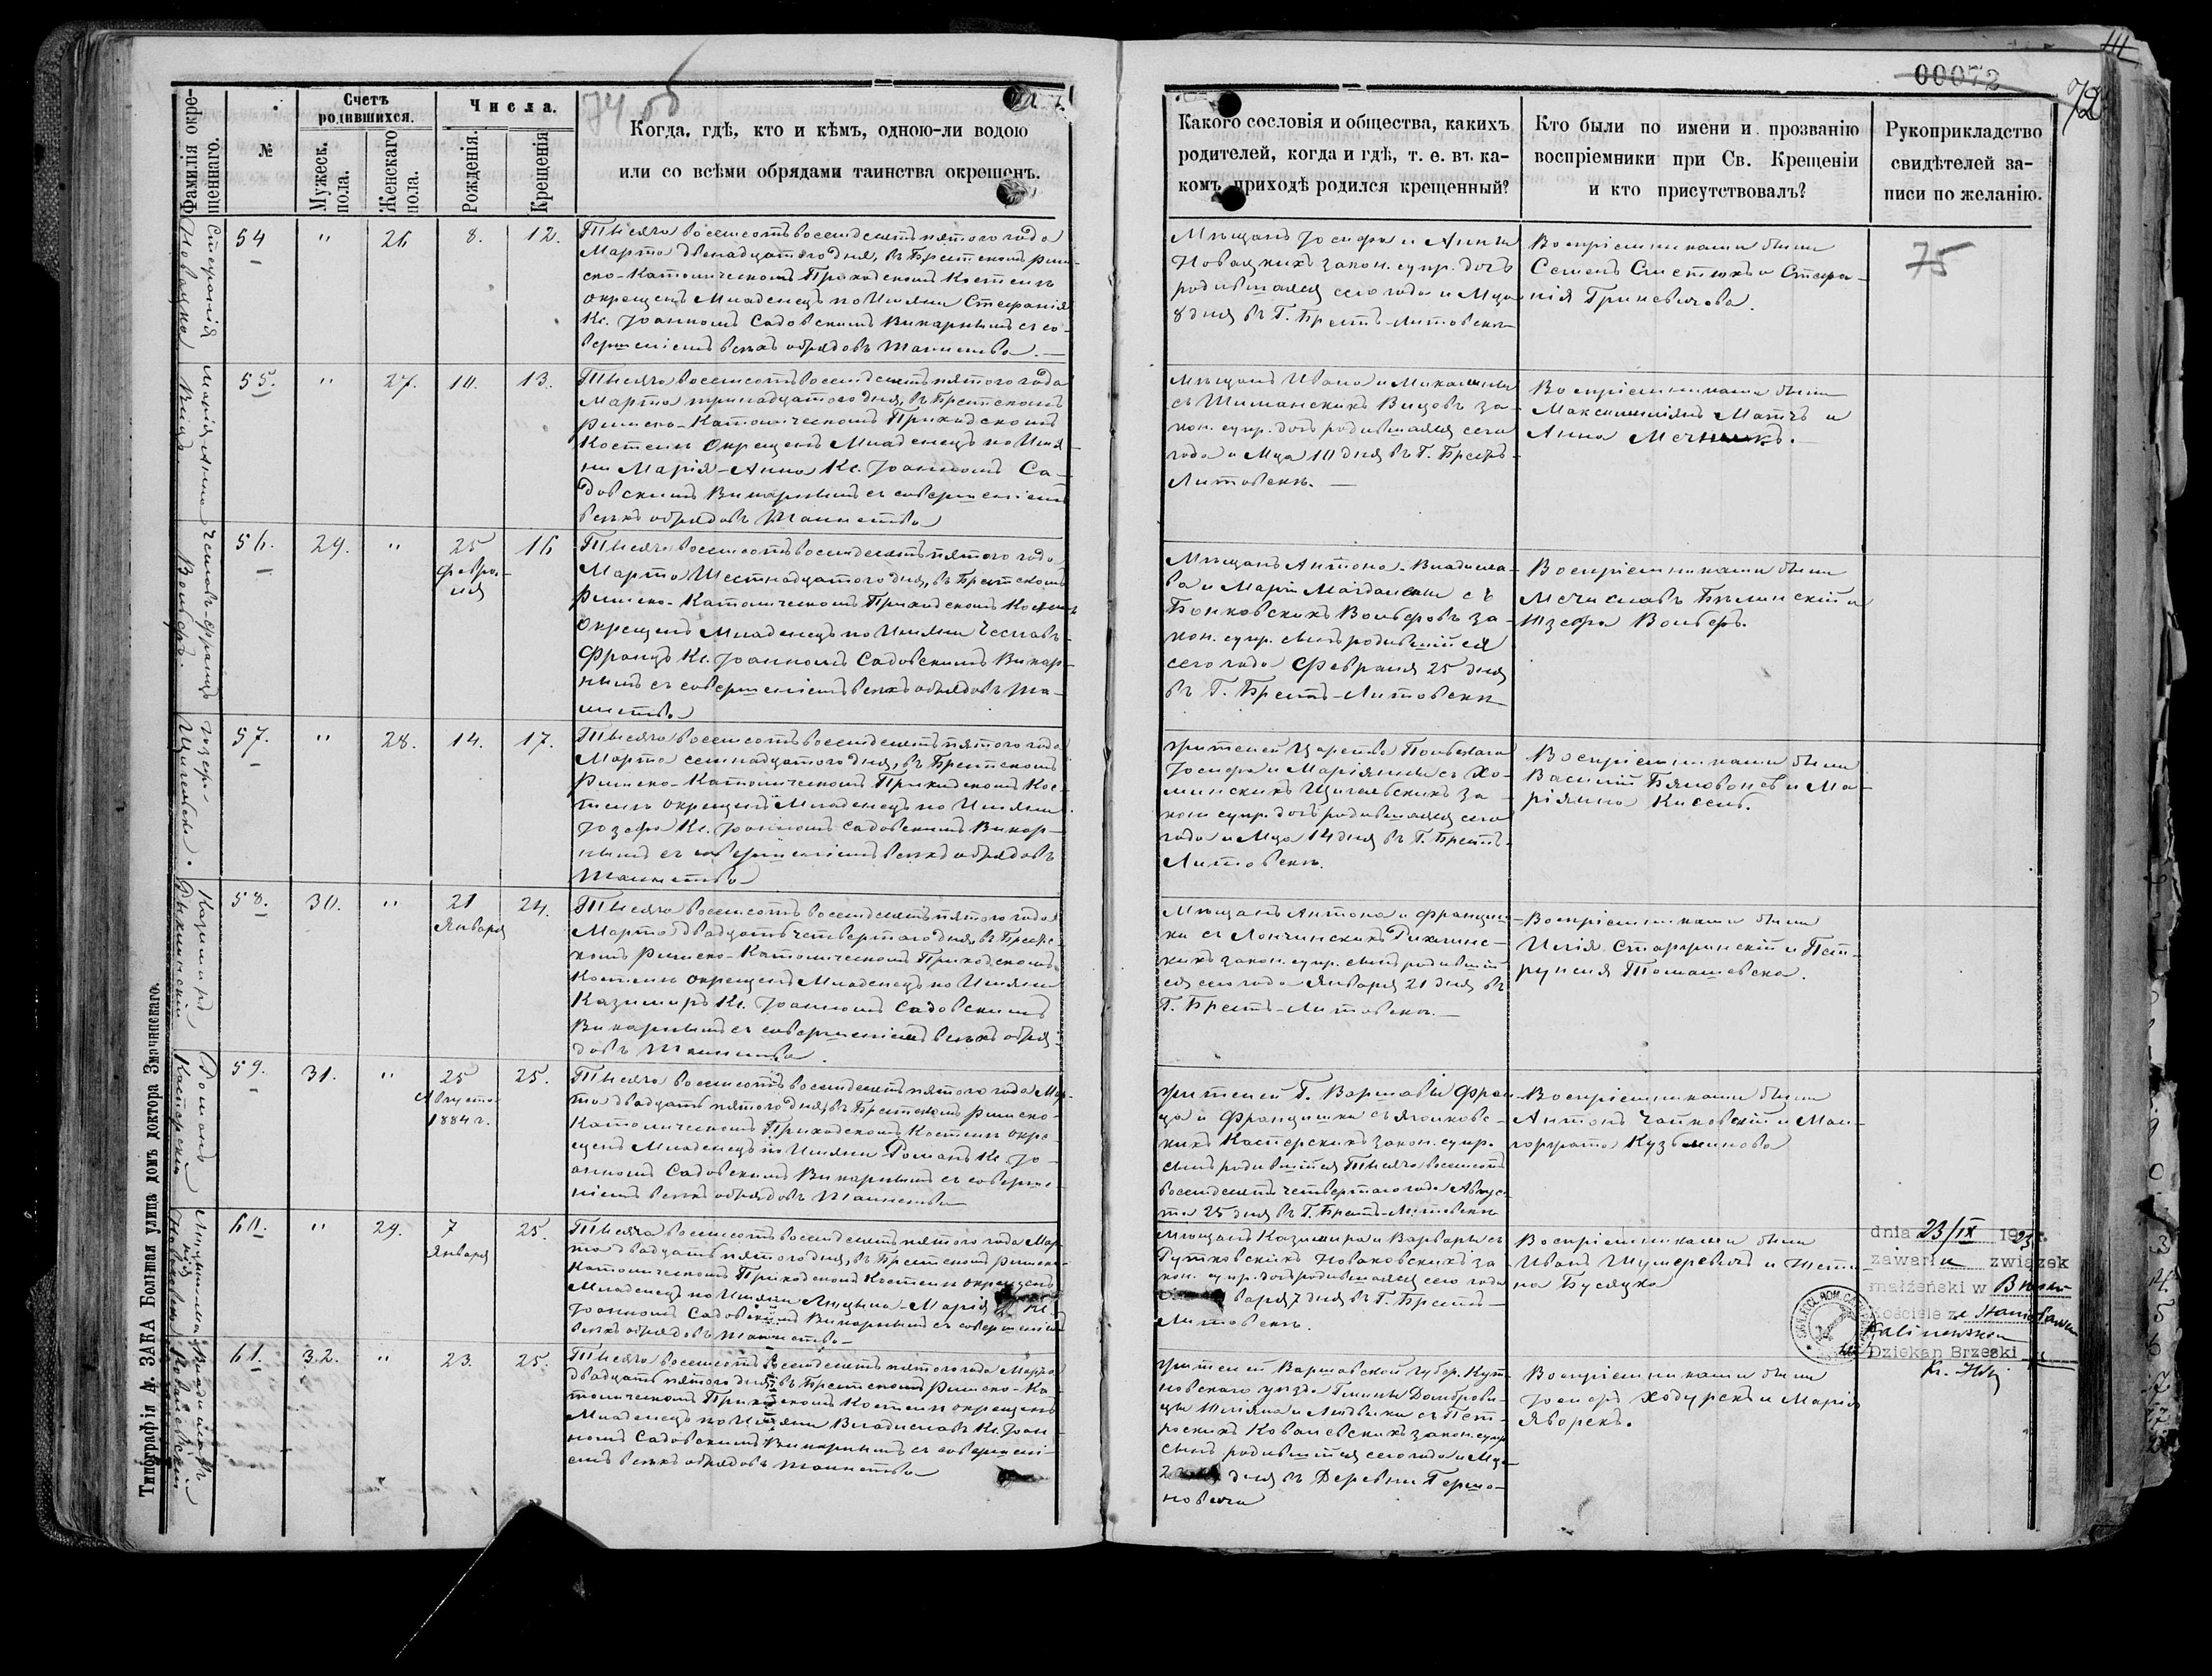 00072
72
74 об
Фамилія окре-
щеннаго.
№
Счетъ
родившихся.
Мужеск.
пола.
Женскаго
пола.
Числа.
Рожденія.
Крещенія
Когда, гдѣ, кто и кѣмъ, одною-ли водою
или со всѣми обрядами таинства окрещенъ.
Какого сословія и общества, какихъ
родителей, когда и гдѣ, т. е. въ ка-
комъ приходѣ родился крещенный?
Кто были по имени и прозванію
воспріемники при Св. Крещеніи
и кто присутствовалъ?
Рукоприкладство
свидѣтелей за-
писи по желанію.
Стефанія
Новацка
54 " 26 8. 12.
Тысяча восемсотъ восемдесятъ пятого года
Марта двенадцатого дня, въ Брестскомъ Рим-
ско-Католическомъ Приходскомъ Костелѣ
окрещенъ Младенецъ по Имяни Стефанія
Кс. Іоанномъ Садовскимъ Викарнымъ съ со-
вершеніемъ всѣхъ обрядовъ Таинства.
Мѣщанъ Іосифа и Анны
Новацкихъ закон. супр. дочь
родившаяся сего года и Мца
8 дня въ Г. Брестъ-Литовскѣ
Воспріемниками были
Семенъ и Стефа-
нія Гриневичова.
75
Марія Анна
Вицъ.
55. " 27. 10. 13.
Тысяча восемсотъ восемдесятъ пятого года
Марта тринадцатого дня, въ Брестскомъ
Римско-Католическомъ Приходскомъ
Костелѣ Окрещенъ Младенецъ по Имя-
ни Марія-Анна Кс. Іоанномъ Са-
довскимъ Викарнымъ съ совершеніемъ
всѣхъ обрядовъ Таинства
Мѣщанъ Ивана и Михалины
съ Шиманскихъ Вицовъ за-
кон. супр. дочь родившаяся сего
года и Мца 10 дня въ Г. Брестъ-
Литовскѣ.
Воспріемниками были
Максимиліянъ Матчъ и
Анна
Чеславъ-Францъ
Вольфъ.
56. 29. " 25
Февра-
ля
16
Тысяча восемсотъ восемдесятъ пятого года
Марта Шестнадцатого дня, въ Брестскомъ
Римско-Католическомъ Приходскомъ Костелѣ
Окрещенъ Младенецъ по Имяни Чеславъ-
Францъ Кс. Іоанномъ Садовскимъ Викар-
нымъ съ совершеніемъ всѣхъ обрядовъ Та-
инства
Мѣщанъ Антона-Владисла-
ва и Маріи Магдалены съ
Бонковскихъ Вольфовъ за-
кон. супр. сынъ родившійся
сего года Февраля 25 дня
въ Г. Брестъ-Литовскѣ
Воспріемниками были
Мечиславъ Бѣлинскій и
Юзефа Вольфъ.
Іозефа
Щигельска.
57. " 28. 14. 17.
Тысяча восемсотъ восемдесятъ пятого года
Марта семнадцатого дня, въ Брестскомъ
Римско-Католическомъ Приходскомъ Кос-
телѣ окрещенъ Младенецъ по Имяни
Іозефа Кс. Іоанномъ Садовскимъ Викар-
нымъ съ совершеніемъ всѣхъ обрядовъ
Таинства
Жителей Царства Польскаго
Іосифа и Маріянны съ Хо-
минскихъ Щигельскихъ за-
кон супр. дочь родившаяся сего
года и Мца 14 дня въ Г. Брестъ-
Литовскѣ.
Воспріемниками были
Василій и Ма-
ріянна Кисель.
Казимиръ
58. 30. " 21
Января
24.
Тысяча восемсотъ восемдесятъ пятого года
Марта двадцать четвертого дня, въ Брестс-
комъ Римско-Католическомъ Приходскомъ
Костелѣ окрещенъ Младенецъ по Имяни
Казимиръ Кс. Іоанномъ Садовскимъ
Викарнымъ съ совершеніемъ всѣхъ обря-
довъ Таинства.
Мѣщанъ Антона и Францыш-
ки съ Лончинскихъ
кихъ закон. супр. сынъ родивші-
ся сего года Января 21 дня въ
Г. Брестъ-Литовскѣ.
Воспріемниками были
Илія и Пет-
рунеля Томашевска.
Романъ
Касперскій
59. 31. " 25
Августа
1884 г.
25.
Тысяча восемсотъ восемдесятъ пятого года Мар-
та двадцать пятого дня, въ Брестскомъ Римско-
Католическомъ Приходскомъ Костелѣ окре-
щенъ Младенецъ по Имяни Романъ Кс. Іо-
анномъ Садовскимъ Викарнымъ съ соверше-
ніемъ всѣхъ обрядовъ Таинства
Жителей Г. Варшавы Фран-
ца и Францишки съ
кихъ Касперскихъ закон. супр.
сынъ родившійся Тысяча восемсотъ
восемдесятъ четвертого года Авгус-
та 25 дня въ Г. Брестъ-Литовскѣ
Воспріемниками были
Антонъ Чайковскій и Мал-
горжата Кузьминова
60. " 29. 7
Января
25.
Тысяча восемсотъ восемдесятъ пятого года Мар-
та двадцать пятого дня, въ Брестскомъ Римско-
Католическомъ Приходскомъ Костелѣ окрещенъ
Младенецъ по Имяни Люцына-Марія Кс.
Іоанномъ Садовскимъ Викарнымъ съ совершеніемъ
всѣхъ обрядовъ Таинства
Мѣщанъ Казимира и Варвары съ
Рутковскихъ Новаковскихъ за-
кон. супр. дочь родившаяся сего года
варя 7 дня въ Г. Брестъ-
Литовскѣ.
Воспріемниками были
Иванъ и
на
dnia 23/IX 1923 r.
zawarła związek
małżeński w
Kościele ze Stanisławem
Kalinowskim
Dziekan Brzeski
Владиславъ
Ковалевскій
61. 32. " 23. 25.
Тысяча восемсотъ восемдесятъ пятого года Марта
двадцать пятого дня, въ Брестскомъ Римско-Ка-
толическомъ Приходскомъ Костелѣ окрещенъ
Младенецъ по Имяни Владиславъ Кс. Іоан-
номъ Садовскимъ Викарнымъ съ совершені-
емъ всѣхъ обрядовъ Таинства
Жителей Варшавской Губер. Кут-
новскаго уѣзда Гмины Домброви-
цы Юліяна и Людвики съ Пет-
роскихъ Ковалевскихъ закон. супр
сынъ родившійся сего года и Мца
дня въ Деревни
Воспріемниками были
Іосифъ и Марія
Яворскъ.
Типографія А. ЗАКА Большая улица домъ доктора Змачинскаго.